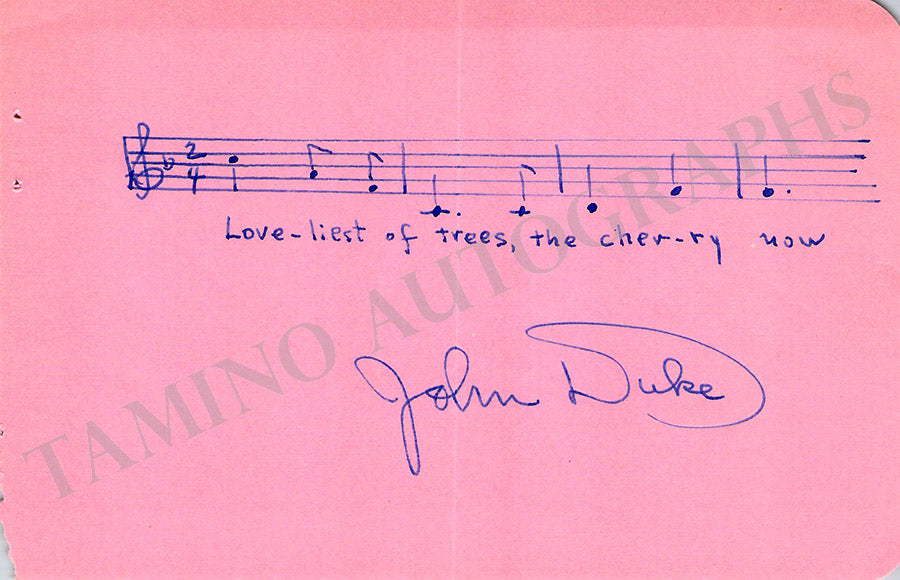 2
4
Love-liest of trees, the cher-ry now
John Duke
TAMINO AUTOGRAPHS